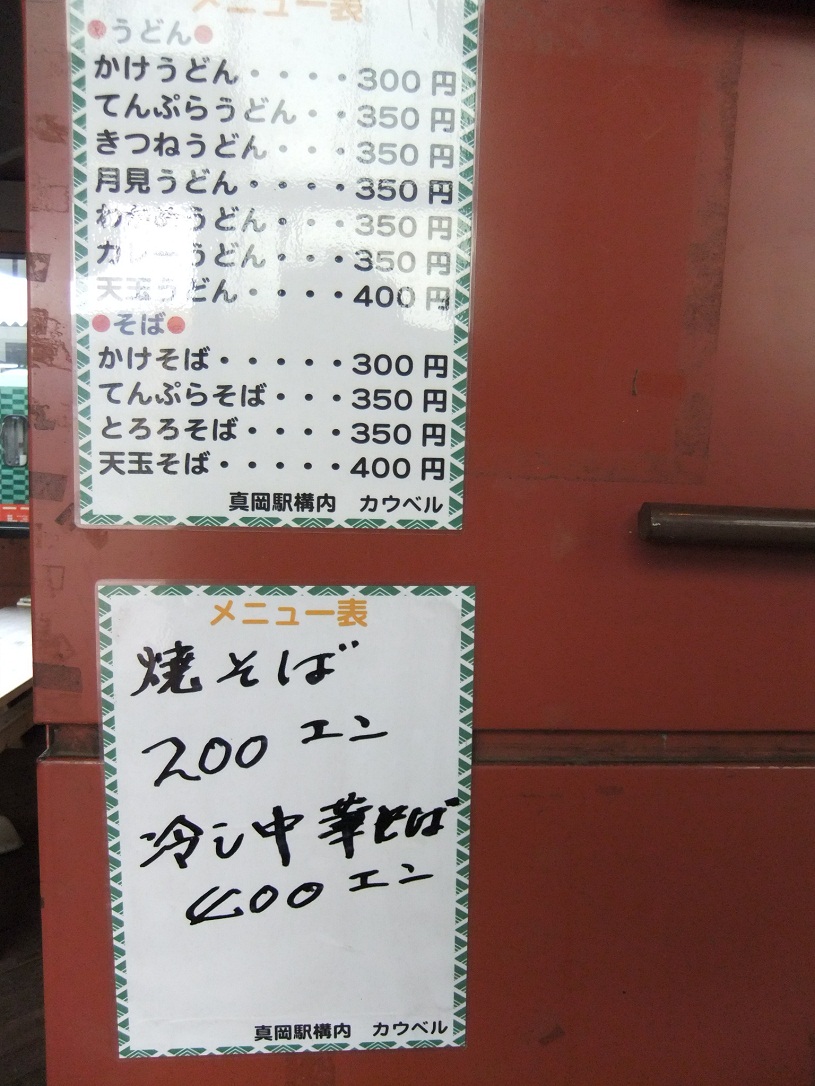 メニュー表
●うどん●
かけうどん・・・・300円
てんぷらうどん・・350円
きつねうどん・・・350円
月見うどん・・・・350円
わかめうどん・・・350円
カレーうどん・・・350円
天玉うどん・・・・400円
●そば●
かけそば・・・・・300円
てんぷらそば・・・350円
とろろそば・・・・350円
天玉そば・・・・・400円
真岡駅構内　カウベル
メニュー表
焼そば
200エン
冷し中華そば
400エン
真岡駅構内　カウベル